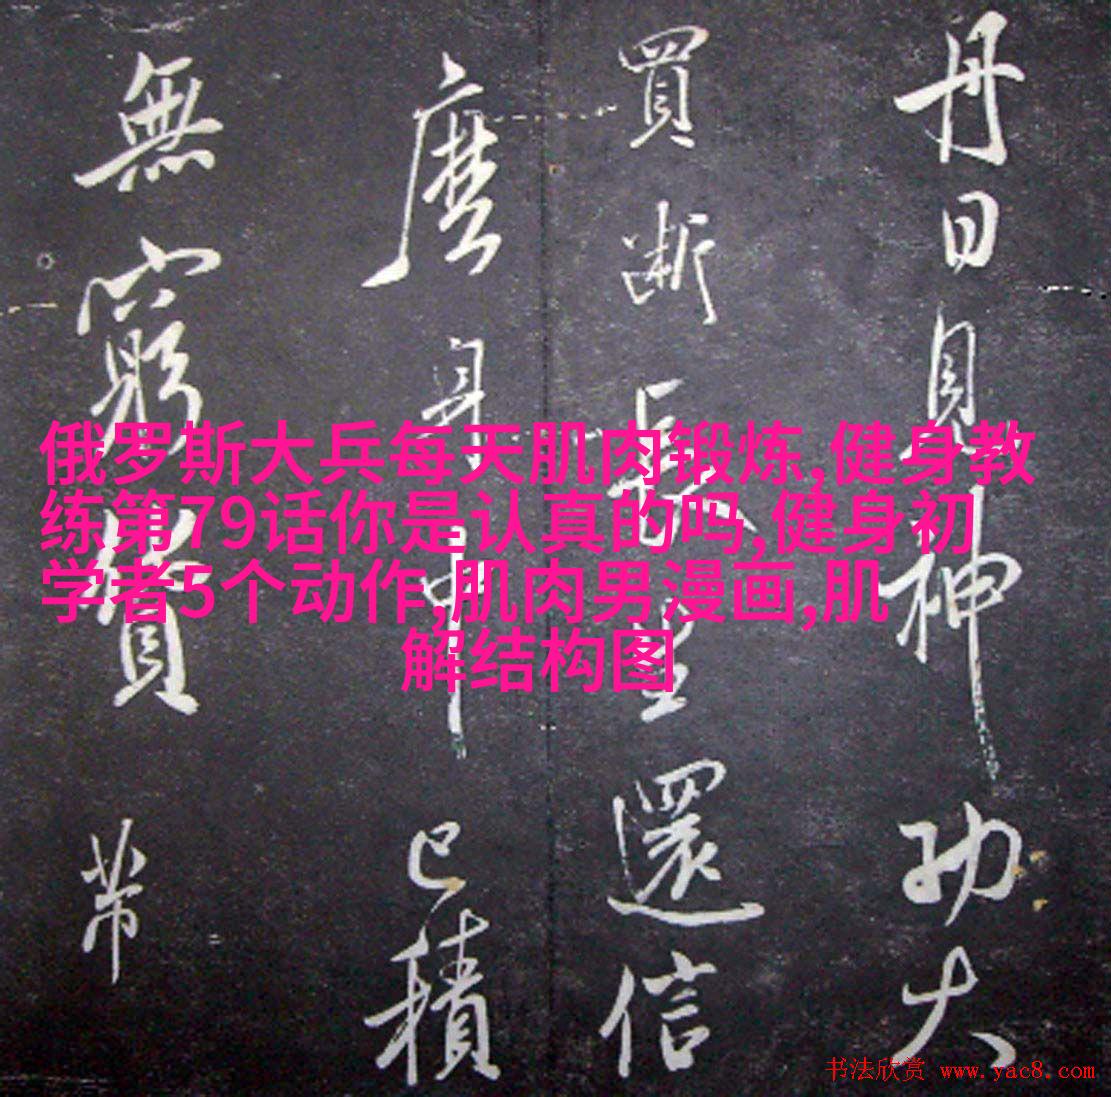 丹日神功大
買斷長生還信
麼身中已積
無窮
俄罗斯大兵每天肌肉锻炼,健身教
练第79话你是认真的吗,健身初
学者5个动作,肌肉男漫画,肌
解结构图
书法欣赏 www.yac8.com